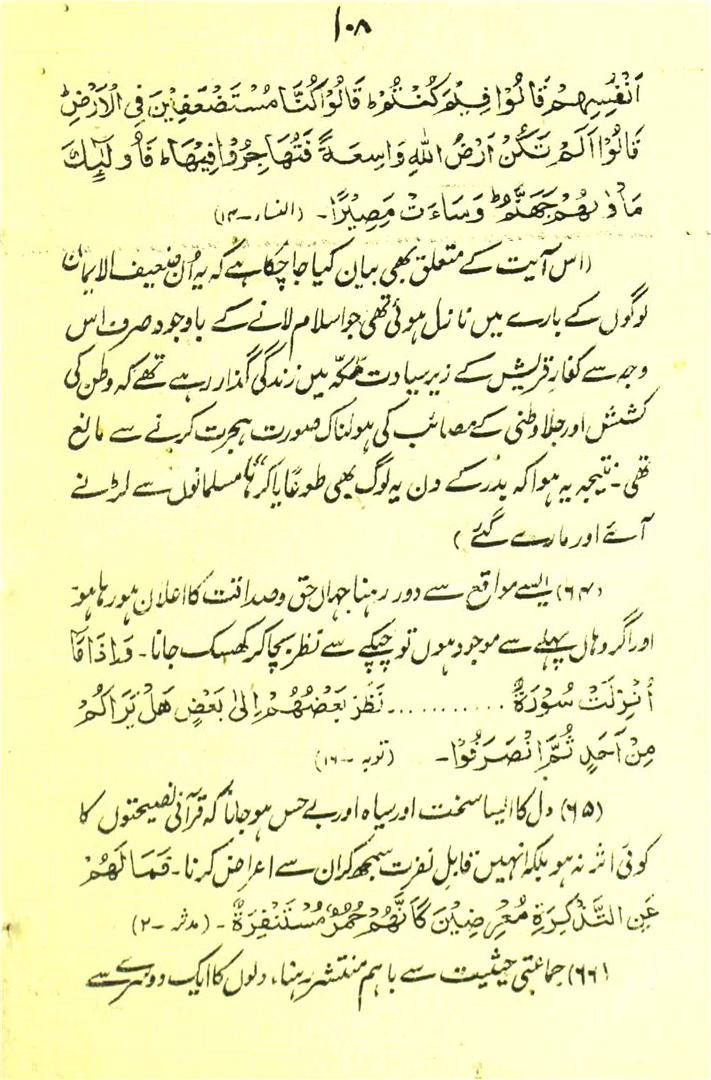 ۱۰۸
اَنْفُسِهِمْ قَالُوْا فِيْمَ كُنْتُمْ ط قَالُوْا كُنَّا مُسْتَضْعَفِيْنَ فِى الْاَرْضِ ط
قَالُوْا اَلَمْ تَكُنْ اَرْضُ اللهِ وَاسِعَةً فَتُهَاجِرُوْا فِيْهَا ط فَاُولٰٓئِكَ
مَاْوٰىهُمْ جَهَنَّمُ ط وَسَاءَتْ مَصِيْرًا۔ (النساء۔۱۴)
(اس آیت کے متعلق بھی بیان کیا جا چکا ہے کہ یہ اُن ضعیف الایمان
لوگوں کے بارے میں نازل ہوئی تھی جو اسلام لانے کے باوجود صرف اس
وجہ سے کفارِ قریش کے زیرِ سیادت مکہ میں زندگی گذار رہے تھے کہ وطن کی
کشش اور جلا وطنی کے مصائب کی ہولناک صورت ہجرت کرنے سے مانع
تھی۔ نتیجہ یہ ہوا کہ بدر کے دن یہ لوگ بھی طوعًا یا کرہًا مسلمانوں سے لڑنے
آئے اور مارے گئے)
(۶۴) ایسے مواقع سے دور رہنا جہاں حق و صداقت کا اعلان ہو رہا ہو
اور اگر وہاں پہلے سے موجود ہوں تو چپکے سے نظر بچا کر کھسک جانا۔ وَاِذَا مَا
اُنْزِلَتْ سُوْرَةٌ .......... نَظَرَ بَعْضُهُمْ اِلىٰ بَعْضٍ هَلْ يَرَاكُمْ
مِنْ اَحَدٍ ثُمَّ انْصَرَفُوْا۔ (توبہ۔۱۶)
(۶۵) دل کا ایسا سخت اور سیاہ اور بے حس ہو جانا کہ قرآنی نصیحتوں کا
کوئی اثر نہ ہو بلکہ انہیں قابلِ نفرت سمجھ کر ان سے اعراض کرنا۔ فَمَا لَهُمْ
عَنِ التَّذْكِرَةِ مُعْرِضِيْنَ كَاَنَّهُمْ حُمُرٌ مُسْتَنْفِرَةٌ۔ (مدثر۔۲)
(۶۶) جماعتی حیثیت سے باہم منتشر رہنا، دلوں کا ایک دوسرے سے